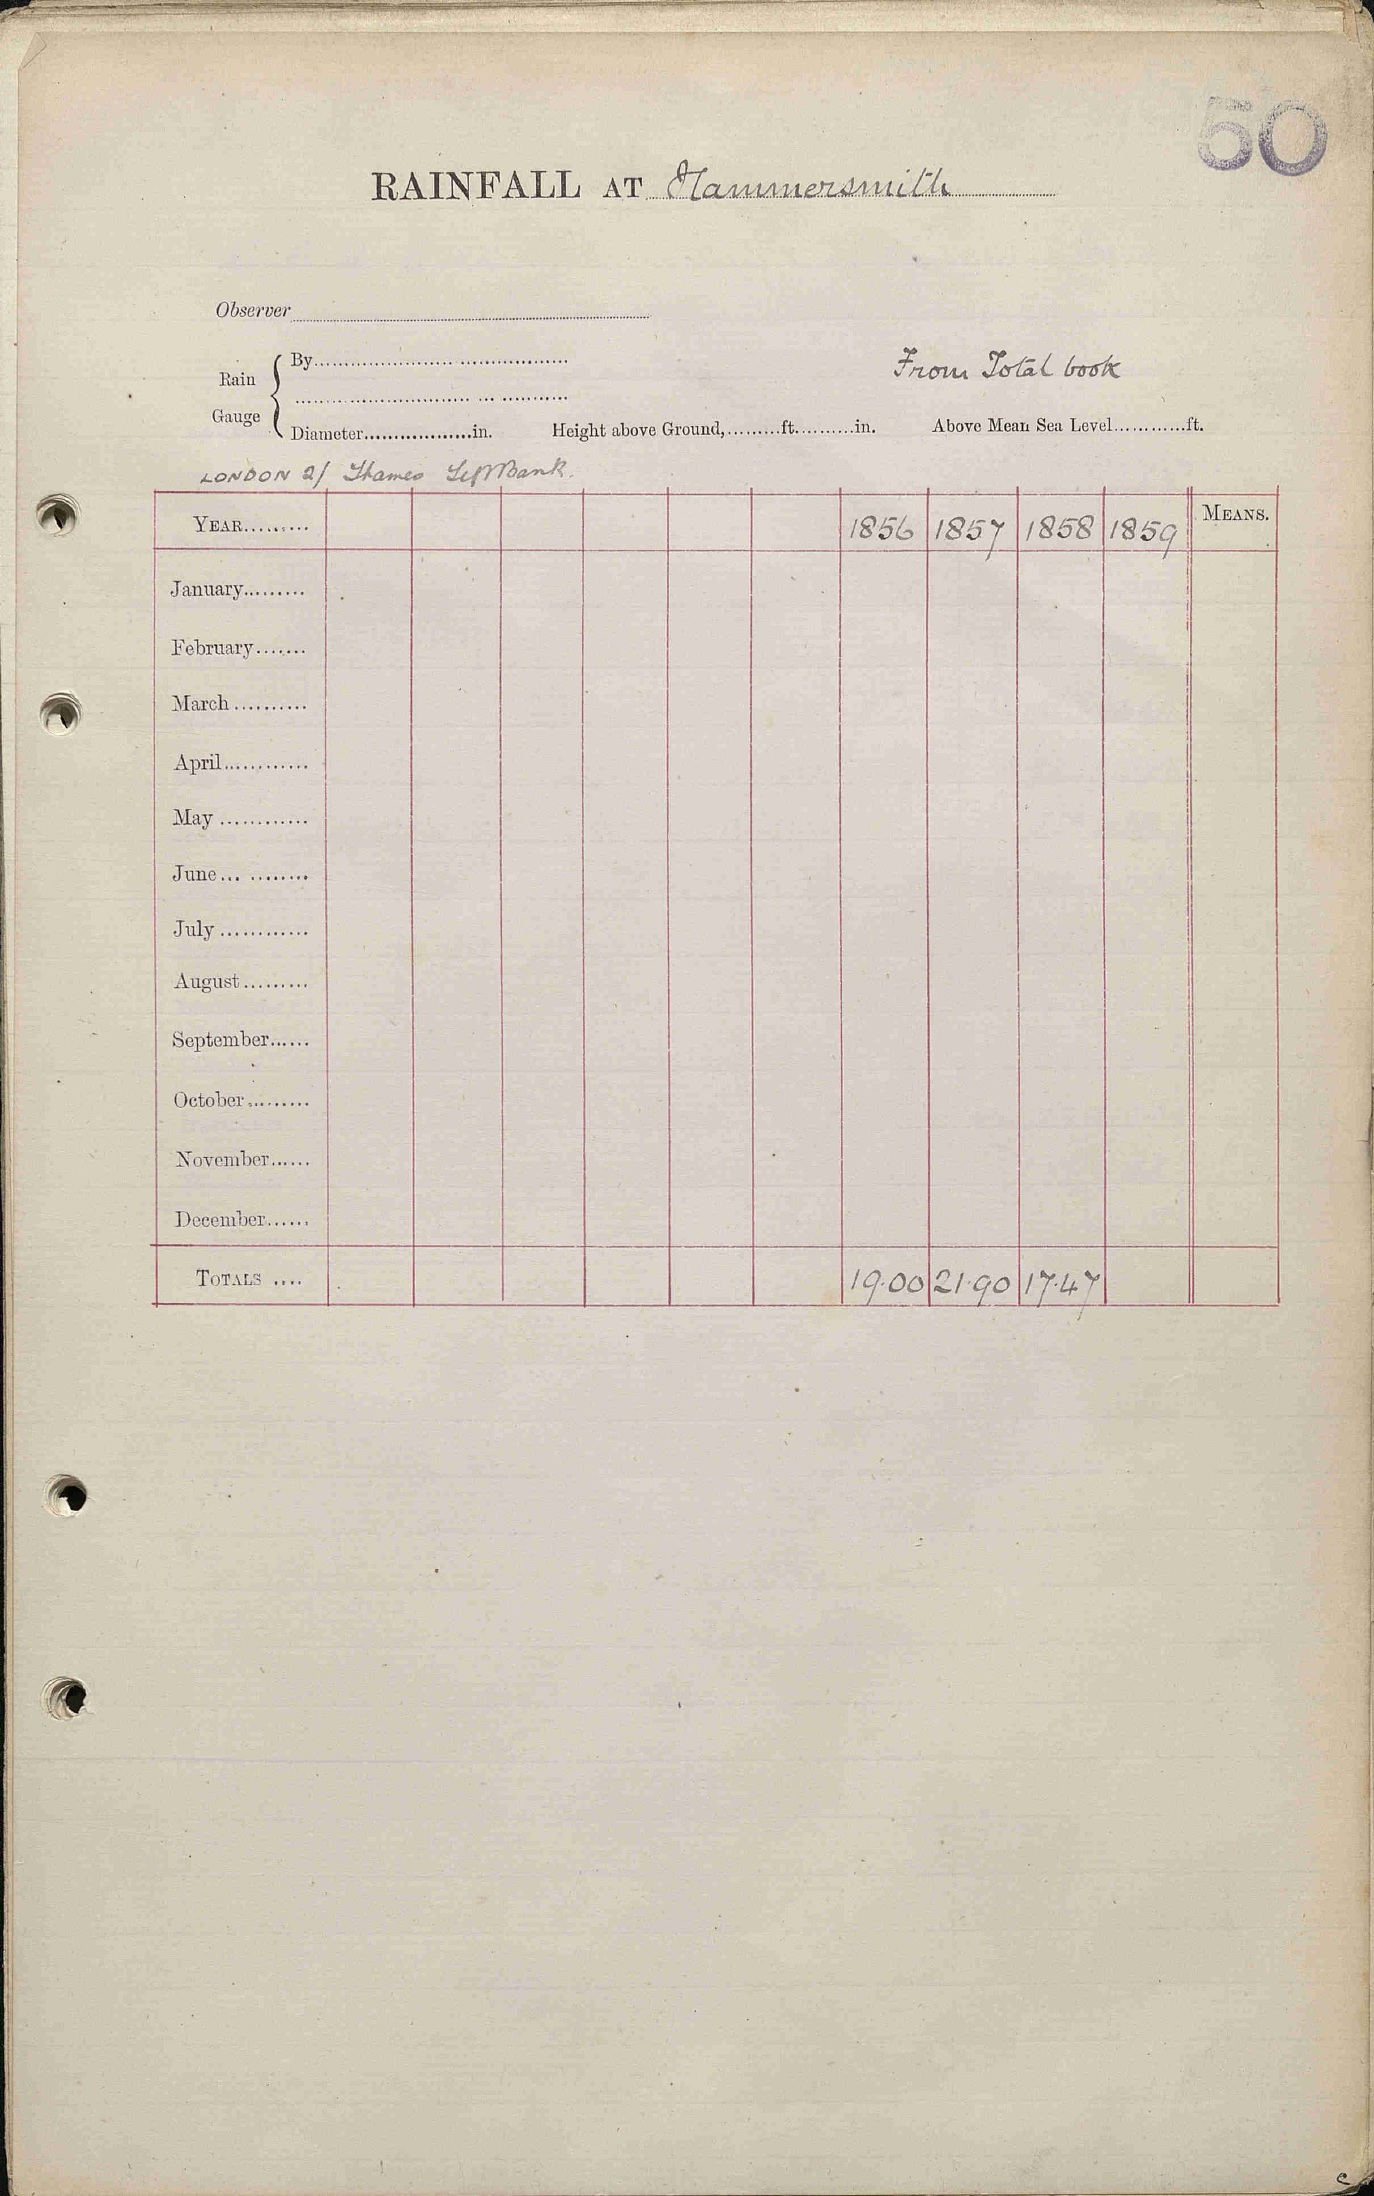 50
RAINFALL AT Hammersmith
Observer
Rain Gauge
By
Diameter..................in. Height above Ground,.........ft..........in. Above Mean Sea Level............ft.
From Total book
LONDON 2/ Thames Left Bank.
YEAR......... 1856 1857 1858 1859 MEANS.
January.........
February.......
March..........
April............
May............
June... ........
July............
August.........
September......
October.........
November......
December......
TOTALS .... 19.00 21.90 17.47
c